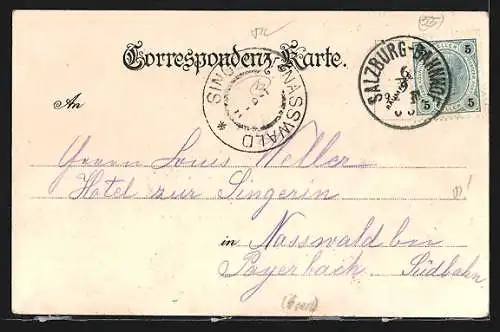 Correspondenz-Karte.
An
SALZBURG-BAHNHOF
5 5
5 5
NASSWALD
Herrn Louis Weller
Hotel zur Singerin
in Nasswald bei
Payerbach Südbahn